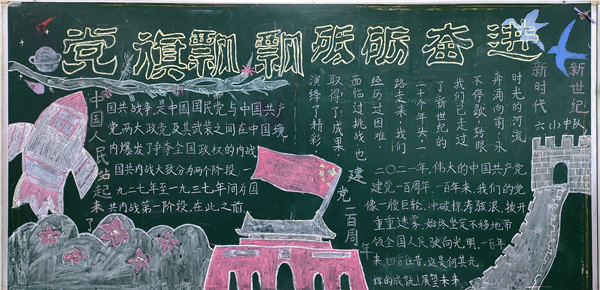 党旗飘飘 砥砺奋进
新世纪
新时代
六(1)中队
中国人民站起来了
国共战争,是中国国民党与中国共产
党两大政党及其武装之间在中国境
内爆发了争夺全国政权的内战
国共内战大致分为两个阶段,一
九二七年至一九三七年间为国
共内战第一阶段,在此之前
建党一百周年
时光的河流
奔涌向前,永
不停歇。转眼
我们已走过
了新世纪的
二十个年头。一
路走来,我们
经历过困难
面临过挑战,也
取得了成果
演绎了精彩。
二〇二一年,伟大的中国共产党
建党一百周年,一百年来,我们的党
像一艘巨轮,冲破惊涛骇浪,拨开
重重迷雾,始终坚定不移地带
领全国人民驶向光明,一百年
来,四百年昔,这是何其光
辉的成就!展望未来